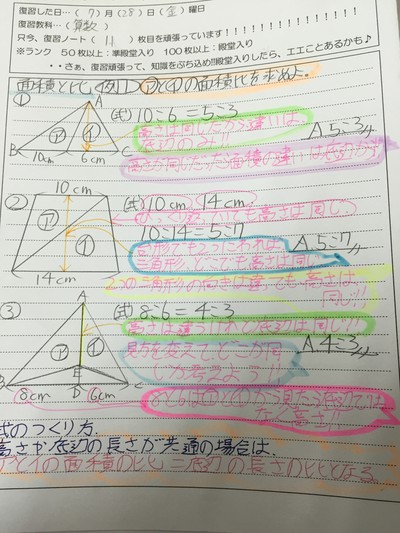 復習した日…（ 7 ）月（ 28 ）日（ 金 ）曜日
復習教科…（ 算数 ）
只今、復習ノート（ 11 ）枚目を頑張っています！！！！！！！！！！！！！！！！
※ランク 50枚以上：準殿堂入り 100枚以上：殿堂入り
・・さぁ、復習頑張って、知識をぶち込め!!殿堂入りしたら、エエことあるかも♪
面積と比 例1 アとイの面積比を求めよ。
① A (式) 10:6 = 5:3
高さは同じだから違いは
底辺のみ!!
ア イ
A. 5:3
B 10cm 6cm C
高さが同じだったら面積の違いは底辺だけ
10cm
② (式) 10cm 14cm
ひっくり返っていても高さは同じ?
10:14=5:7
ア イ
A. 5:7
三角形どこも高さは同じ
14cm
2つの三角形の向きは違っても高さは
同じ!!
③ A (式) 8:6 = 4:3
高さは違うけれど底辺は同じ!!
ア イ
A. 4:3
見方を変えてどこが同
じか考えよう!!
E
B 8cm D 6cm C
なく高さ!!
式のつくり方.
高さか底辺の長さが共通の場合は、
アとイの面積のヒヒ=底辺の長さのヒヒとなる.